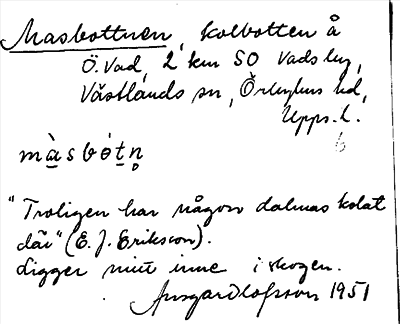 Masbottnen, kolbotten å
Ö. Vad, 2 km SO Vads by,
Västlands sn, Örbyhus hd,
Upps. l.
6
màsbótn
"Troligen har någon dalmas kolat
där" (E. J. Eriksson).
Ligger mitt inne i skogen.
Ansgar Olofsson 1951